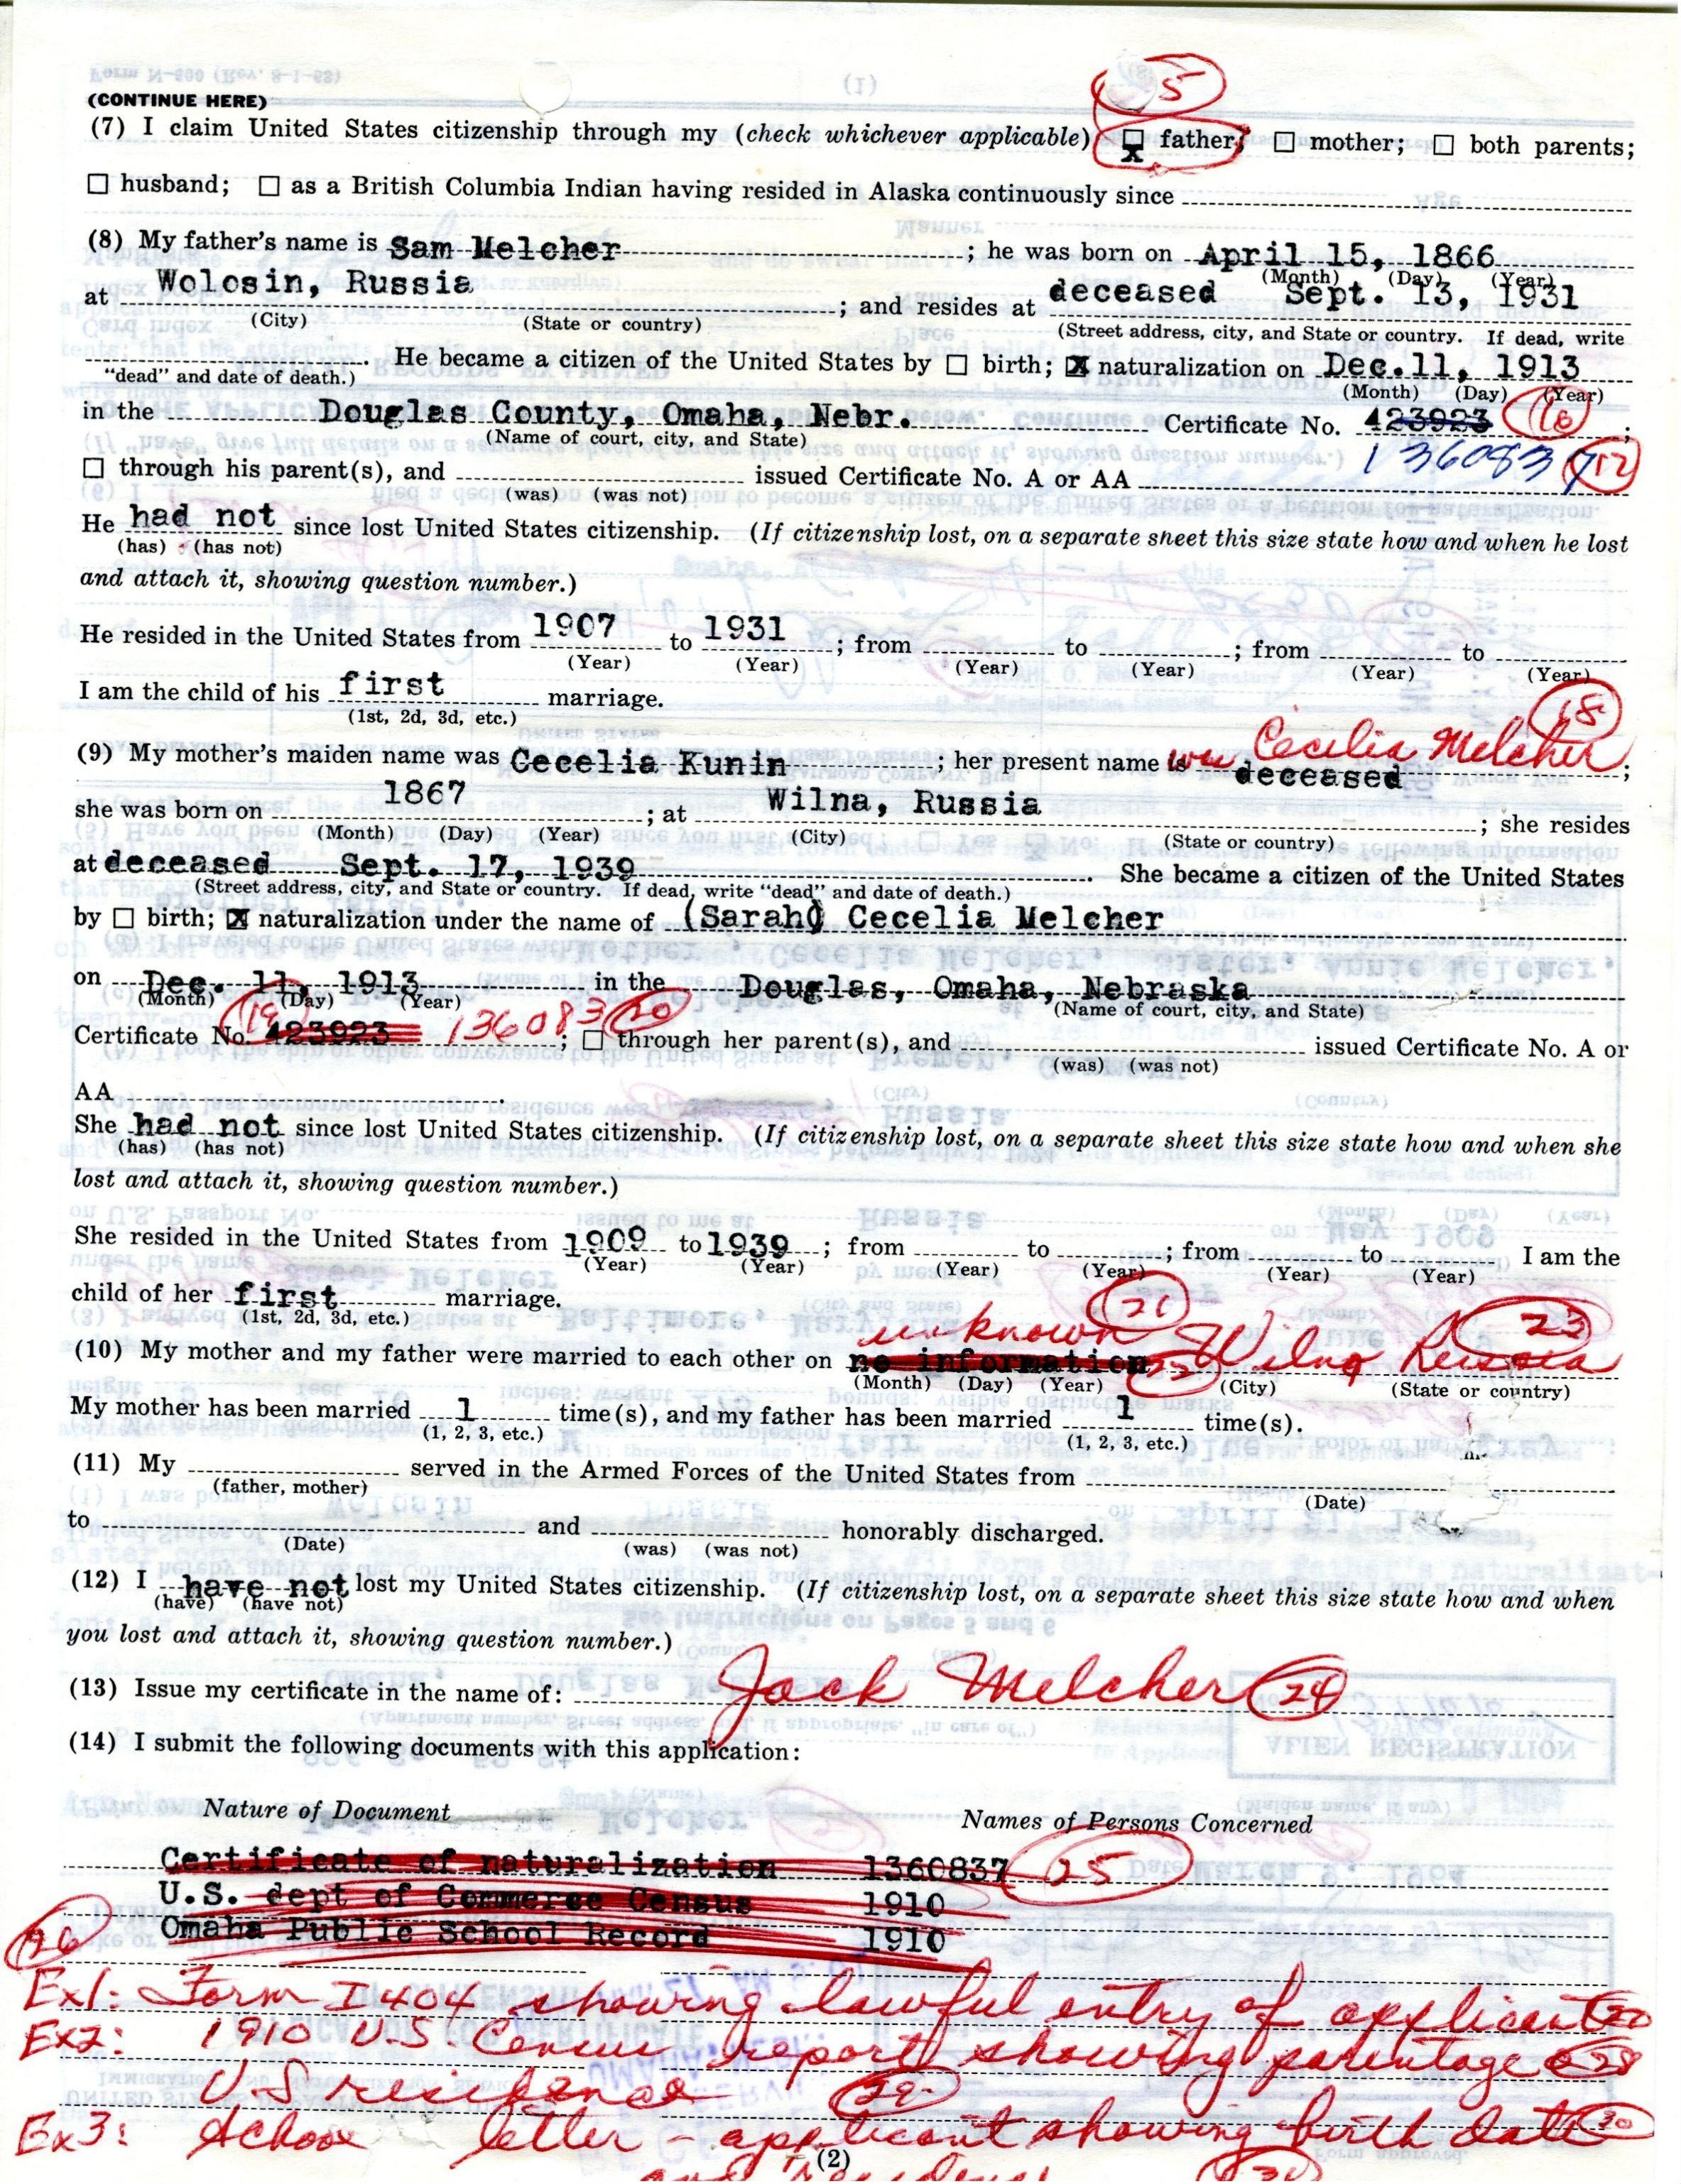 (CONTINUE HERE)
5
(7) I claim United States citizenship through my (check whichever applicable) ☒ father; ☐ mother; ☐ both parents;
☐ husband; ☐ as a British Columbia Indian having resided in Alaska continuously since
(8) My father's name is Sam Melcher ; he was born on April 15, 1866
(Month) (Day) (Year)
at Wolosin, Russia ; and resides at deceased Sept. 13, 1931
(City) (State or country) (Street address, city, and State or country. If dead, write
"dead" and date of death.) He became a citizen of the United States by ☐ birth; ☒ naturalization on Dec. 11, 1913
(Month) (Day) (Year)
in the Douglas County, Omaha, Nebr. Certificate No. 423923 16 ;
(Name of court, city, and State)
1360837 17
☐ through his parent(s), and issued Certificate No. A or AA
(was) (was not)
He had not since lost United States citizenship. (If citizenship lost, on a separate sheet this size state how and when he lost
(has) (has not)
and attach it, showing question number.)
He resided in the United States from 1907 to 1931 ; from to ; from to
(Year) (Year) (Year) (Year) (Year) (Year)
I am the child of his first marriage.
(1st, 2d, 3d, etc.)
18
(9) My mother's maiden name was Cecelia Kunin ; her present name is was Cecilia Melcher deceased ;
she was born on 1867 ; at Wilna, Russia ; she resides
(Month) (Day) (Year) (City) (State or country)
at deceased Sept. 17, 1939 . She became a citizen of the United States
(Street address, city, and State or country. If dead, write "dead" and date of death.)
by ☐ birth; ☒ naturalization under the name of (Sarah) Cecelia Melcher
on Dec. 11, 1913 in the Douglas, Omaha, Nebraska
(Month) (Day) (Year) (Name of court, city, and State)
Certificate No. 19 423923 136083 20 ; ☐ through her parent(s), and issued Certificate No. A or
(was) (was not)
AA .
She had not since lost United States citizenship. (If citizenship lost, on a separate sheet this size state how and when she
(has) (has not)
lost and attach it, showing question number.)
She resided in the United States from 1909 to 1939 ; from to ; from to I am the
(Year) (Year) (Year) (Year) (Year) (Year)
child of her first marriage.
(1st, 2d, 3d, etc.)
21 23
(10) My mother and my father were married to each other on no information unknown 22 Wilna Russia
(Month) (Day) (Year) (City) (State or country)
My mother has been married 1 time(s), and my father has been married 1 time(s).
(1, 2, 3, etc.) (1, 2, 3, etc.)
(11) My served in the Armed Forces of the United States from
(father, mother) (Date)
to and honorably discharged.
(Date) (was) (was not)
(12) I have not lost my United States citizenship. (If citizenship lost, on a separate sheet this size state how and when
(have) (have not)
you lost and attach it, showing question number.)
(13) Issue my certificate in the name of: Jack Melcher 24
(14) I submit the following documents with this application:
Nature of Document Names of Persons Concerned
Certificate of naturalization 1360837 25
U.S. dept of Commerce Census 1910
Omaha Public School Record 1910
26
Ex1: Form I 404 showing lawful entry of applicant
Ex2: 1910 U.S. Census report showing parentage & 28
U.S residence 29
Ex3: School letter - applicant showing birth date 30
(2)